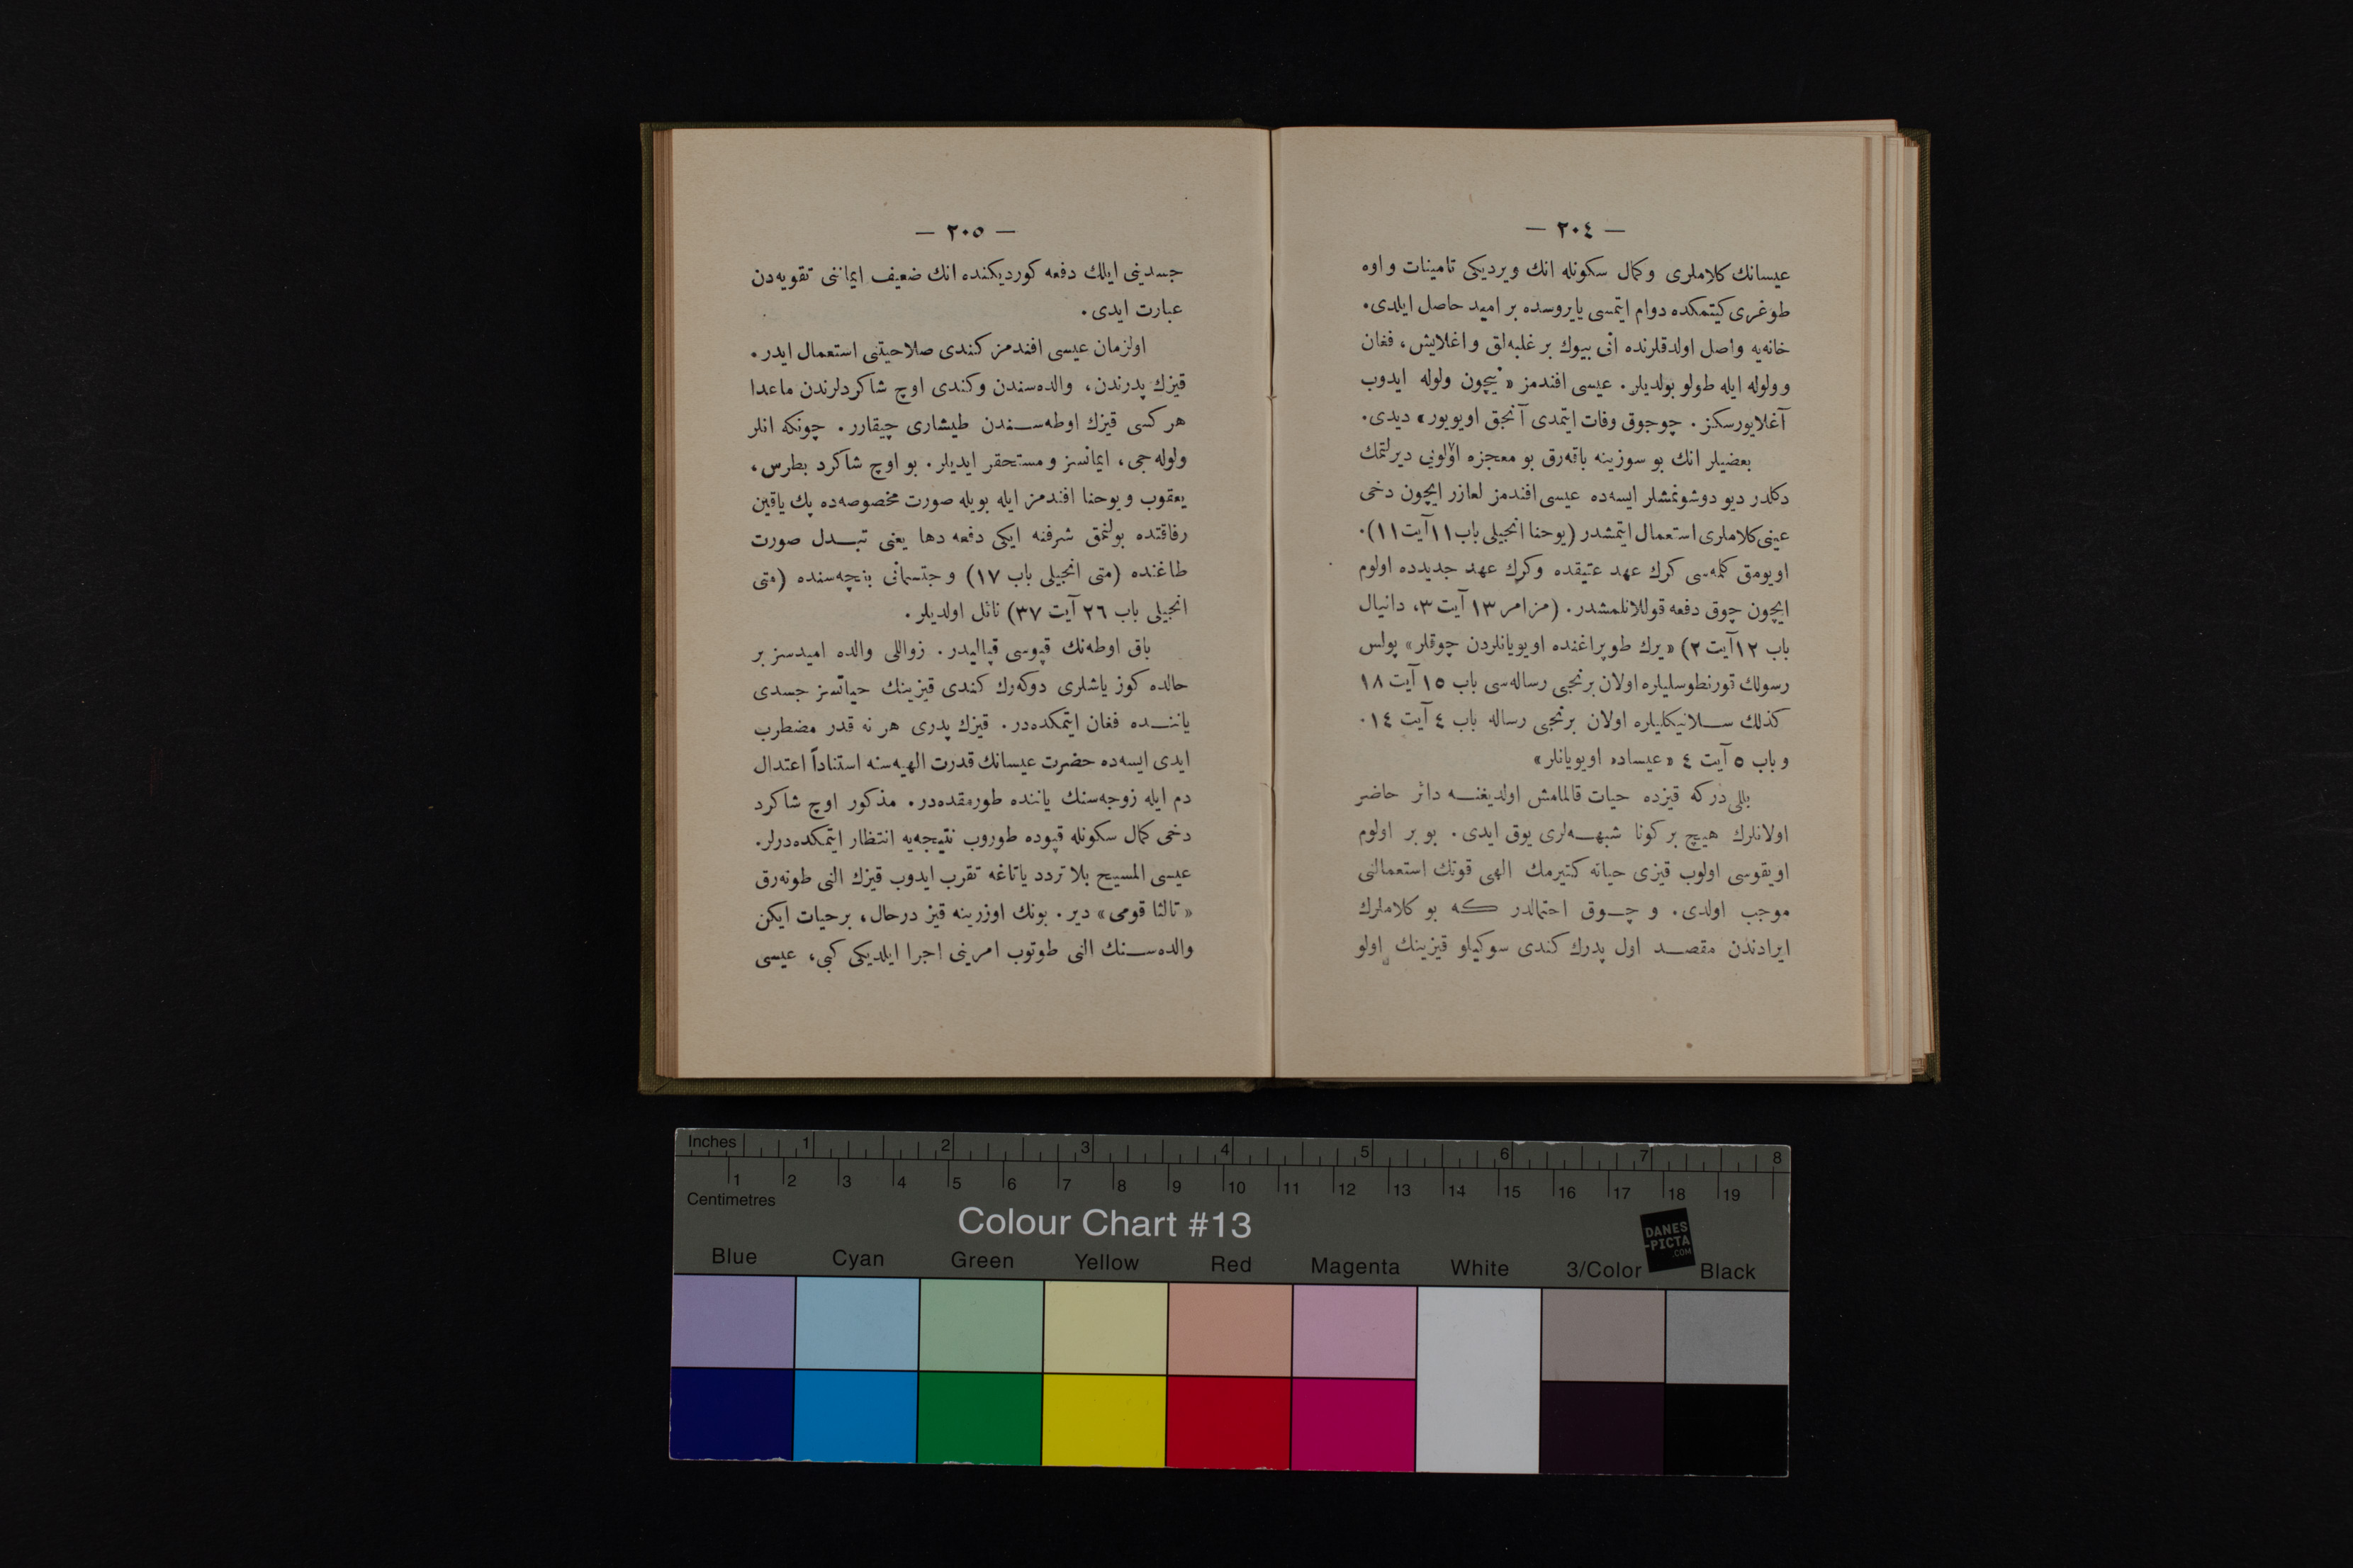 — ٢٠٤ —
عیسانك كلاملری وكمال سكونله انك ویردیكی تامینات و اوه
طوغری كیتمكده دوام ایتمسی یایروسده بر امید حاصل ایلدی.
خانه‌یه واصل اولدقلرنده انی بیوك بر غلبه‌لق و اغلایش، فغان
و ولوله ایله طولو بولدیلر. عیسی افندمز «نیچون ولوله ایدوب
آغلایورسكز. چوجوق وفات ایتمدی آنجق اویویور» دیدی.
بعضیلر انك بو سوزینه باقه‌رق بو معجزه اولویی دیرلتمك
دكلدر دیو دوشونمشلر ایسه‌ده عیسی افندمز لعازر ایچون دخی
عینی كلاملری استعمال ایتمشدر (یوحنا انجیلی باب ١١ آیت ١١).
اویومق كلمه‌سی كرك عهد عتیقده وكرك عهد جدیدده اولوم
ایچون چوق دفعه قوللانلمشدر. (مزامر ١٣ آیت ٣، دانیال
باب ١٢ آیت ٢) «یرك طوپراغنده اویویانلردن چوقلر» پولس
رسولك قورنطوسلیلره اولان برنجی رساله‌سی باب ١٥ آیت ١٨
كذلك سلانیكلیلره اولان برنجی رساله باب ٤ آیت ١٤.
و باب ٥ آیت ٤ «عیساده اویویانلر»
بللی دركه قیزده حیات قالمامش اولدیغنه دائر حاضر
اولانلرك هیچ بر كونا شبهه‌لری یوق ایدی. بو بر اولوم
اویقوسی اولوب قیزی حیاته كتیرمك الهی قوتك استعمالنی
موجب اولدی. و چوق احتمالدر كه بو كلاملرك
ایرادندن مقصد اول پدرك كندی سوكیلو قیزینك اولو
— ٢٠٥ —
جسدینی ایلك دفعه كوردیكنده انك ضعیف ایماننی تقویه‌دن
عبارت ایدی.
اولزمان عیسی افندمز كندی صلاحیتنی استعمال ایدر.
قیزك پدرندن، والده‌سندن وكندی اوچ شاكردلرندن ماعدا
هر كسی قیزك اوطه‌سندن طیشاری چیقارر. چونكه انلر
ولوله‌جی، ایمانسز و مستحقر ایدیلر. بو اوچ شاكرد بطرس،
یعقوب و یوحنا افندمز ایله بویله صورت مخصوصه‌ده پك یاقین
رفاقتده بولنمق شرفنه ایكی دفعه دها یعنی تبدل صورت
طاغنده (متی انجیلی باب ١٧) و جتسمانی باغچه‌سنده (متی
انجیلی باب ٢٦ آیت ٣٧) نائل اولدیلر.
باق اوطه‌نك قپوسی قپالیدر. زواللی والده امیدسز بر
حالده كوز یاشلری دوكه‌رك كندی قیزینك حیاتسز جسدی
یاننده فغان ایتمكده‌در. قیزك پدری هر نه قدر مضطرب
ایدی ایسه‌ده حضرت عیسانك قدرت الهیه‌سنه استناداً اعتدال
دم ایله زوجه‌سنك یاننده طورمقده‌در. مذكور اوچ شاكرد
دخی كمال سكونله قپوده طوروب نتیجه‌یه انتظار ایتمكده‌درلر.
عیسی المسیح بلا تردد یاتاغه تقرب ایدوب قیزك النی طونه‌رق
«تالثا قومی» دیر. بونك اوزرینه قیز درحال، برحیات ایكن
والده‌سنك النی طوتوب امرینی اجرا ایلدیكی كبی، عیسی
Inches 1 2 3 4 5 6 7 8
1 2 3 4 5 6 7 8 9 10 11 12 13 14 15 16 17 18 19
Centimetres
Colour Chart #13
DANES
-PICTA
.COM
Blue Cyan Green Yellow Red Magenta White 3/Color Black